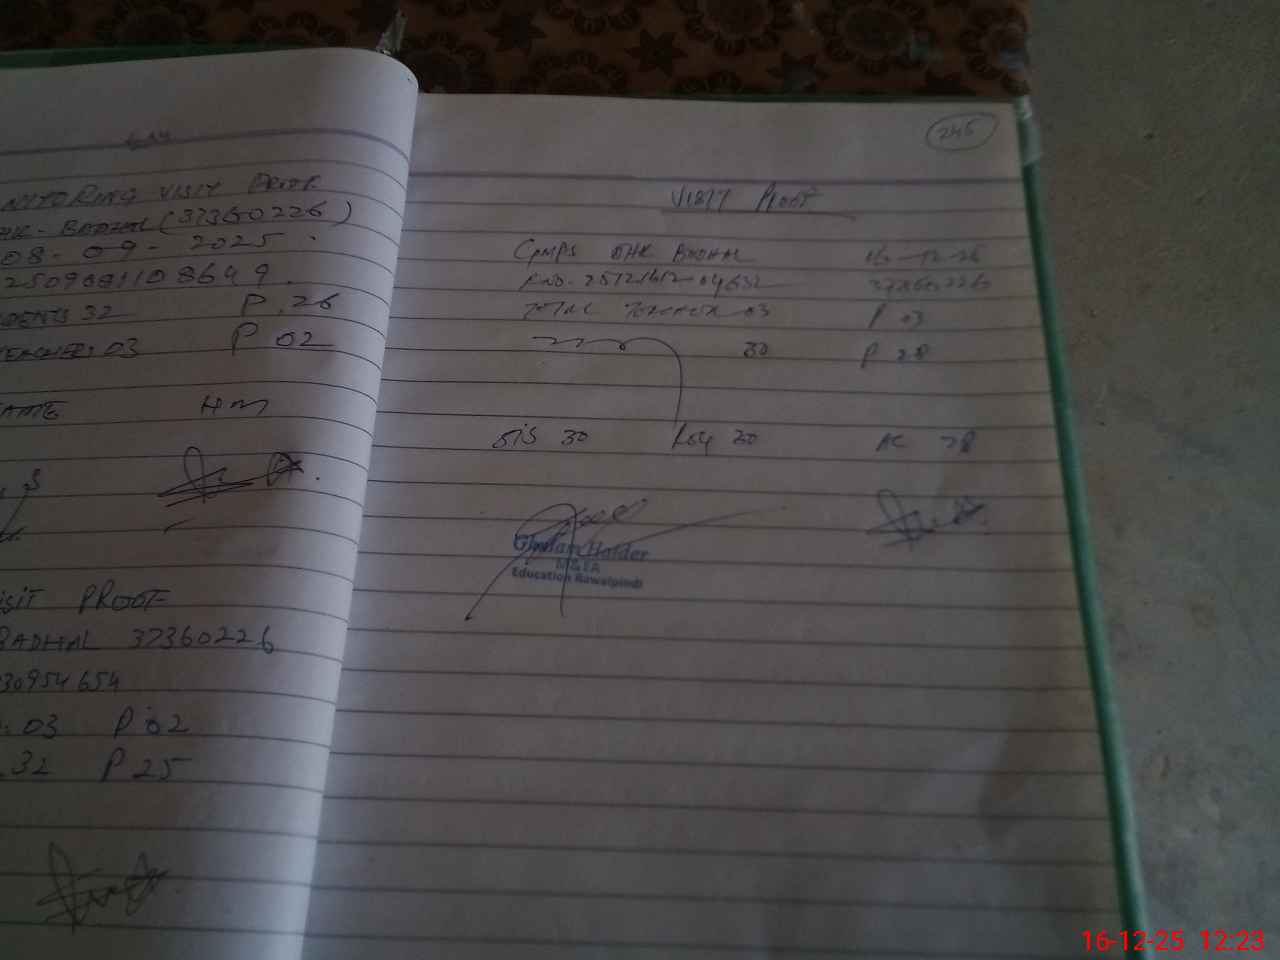 NITORING VISIT PROOF
DHK-BADHAL (37360226)
08-09-2025
2509081108649
DENTS 32 P. 26
TEACHERS 03 P 02
NAME HM
VISIT PROOF
BADHAL 37360226
30954654
03 P 02
32 P 25
245
VISIT PROOF
GMPS DHK BADHAL 16-12-25
R.NO. 25121612-04632 37360226
TOTAL TEACHER 03 P 03
30 P 28
SIS 30 Reg 30 AC 28
Ghulam Haider
M&EA
Education Rawalpindi
16-12-25 12:23